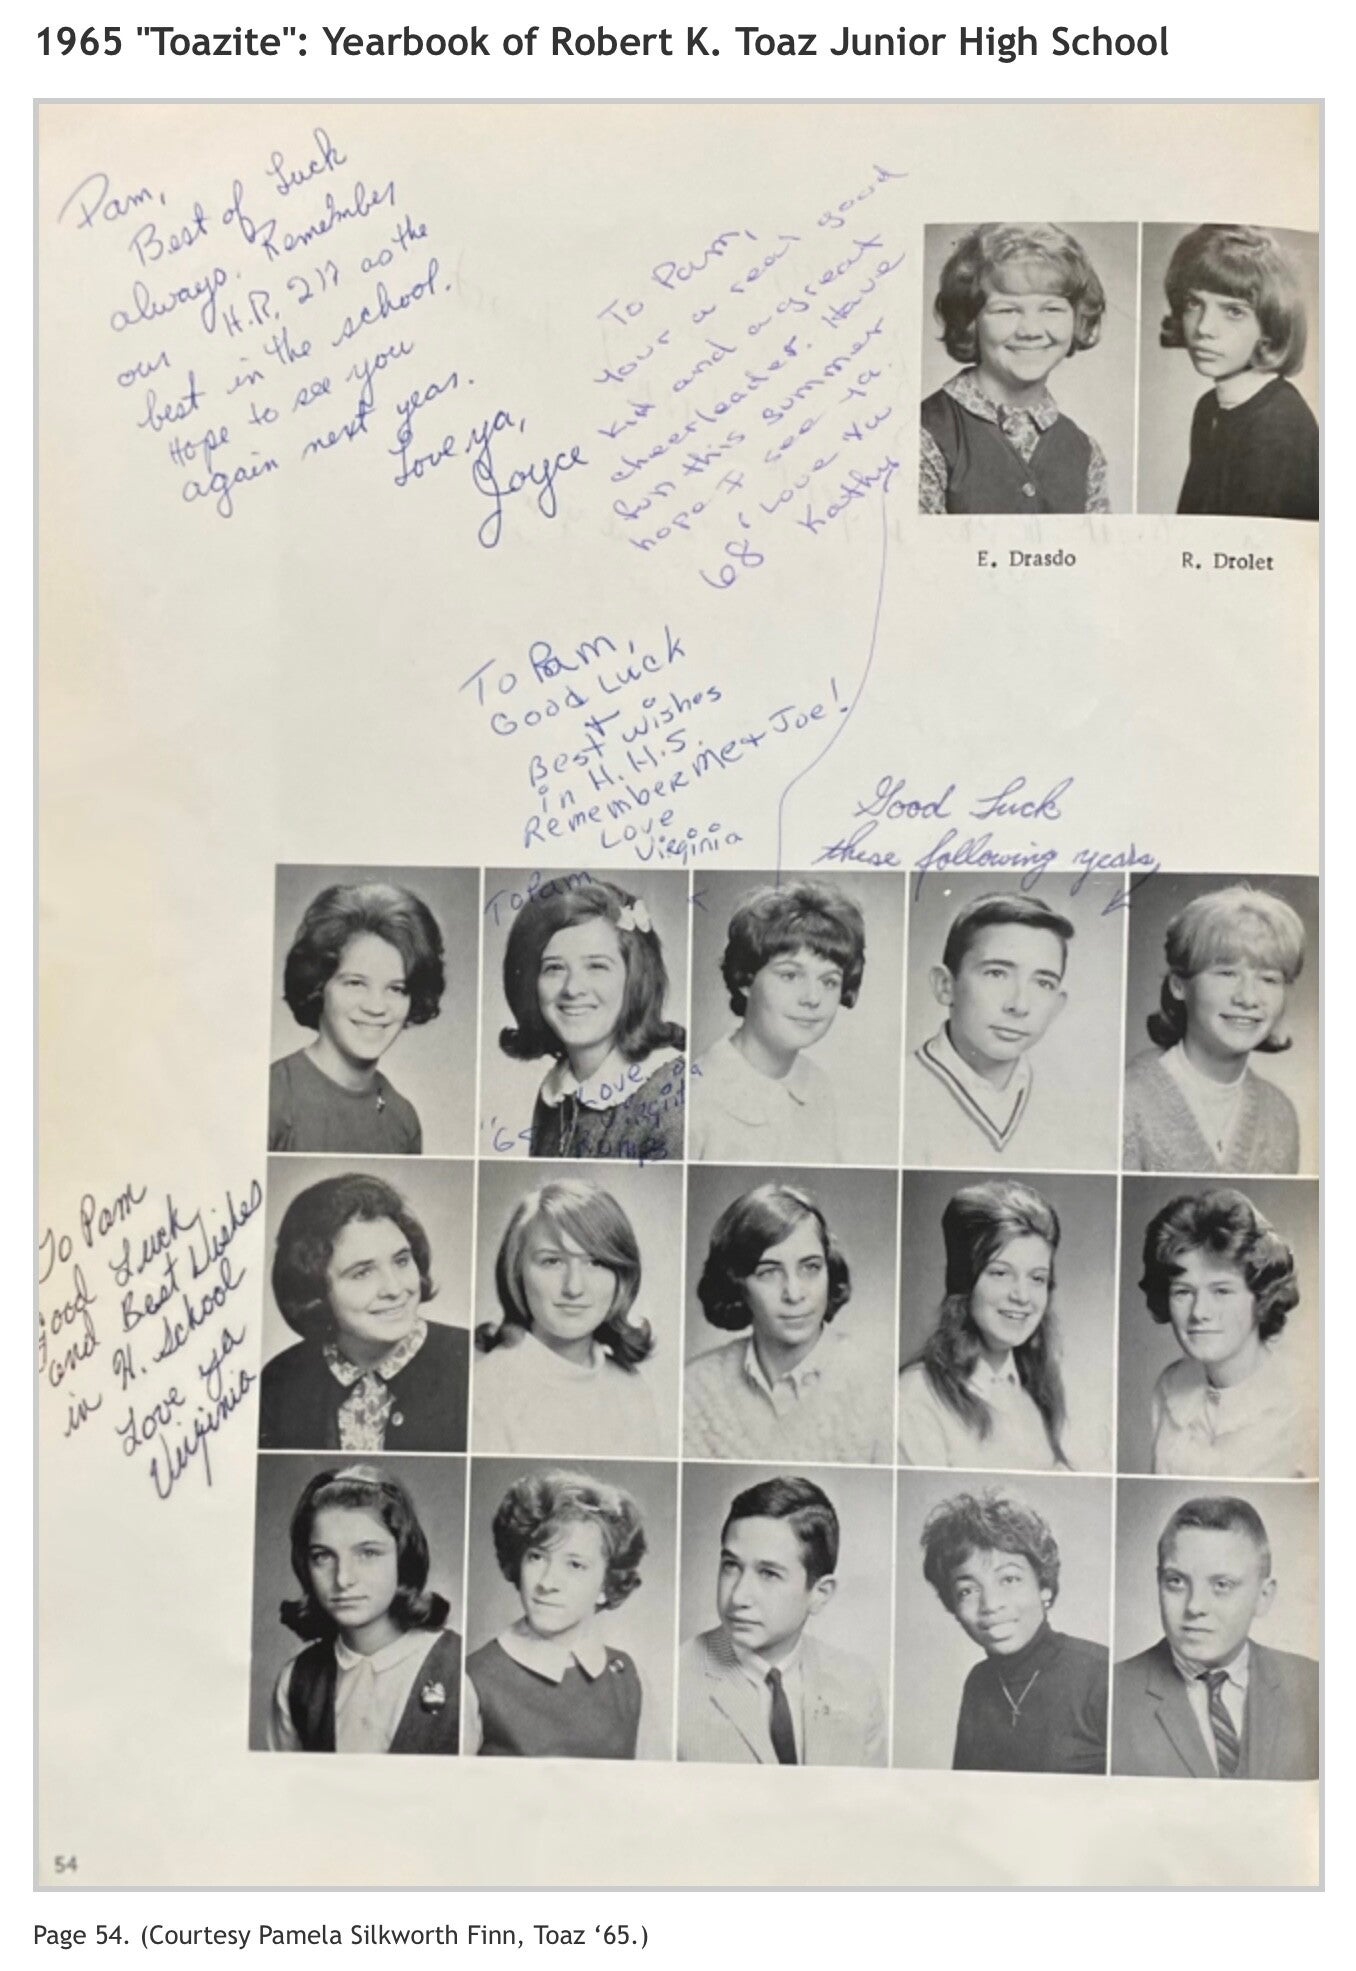 1965 "Toazite": Yearbook of Robert K. Toaz Junior High School
Pam,
Best of Luck
always. Remember
our H.R. 217 as the
best in the school.
Hope to see you
again next year.
Love ya,
Joyce
To Pam,
Your a real good
kid and a great
cheerleader. Have
fun this summer
hope I see ya.
Love Ya
68
Kathy
E. Drasdo
R. Drolet
To Pam,
Good Luck
+
Best Wishes
in H.H.S.
Remember Me + Joe!
Love
Virginia
Good Luck
these following years,
To Pam
Love
Virginia
To Pam
Good Luck
and Best Wishes
in H. School
Love ya
Virginia
54
Page 54. (Courtesy Pamela Silkworth Finn, Toaz ‘65.)